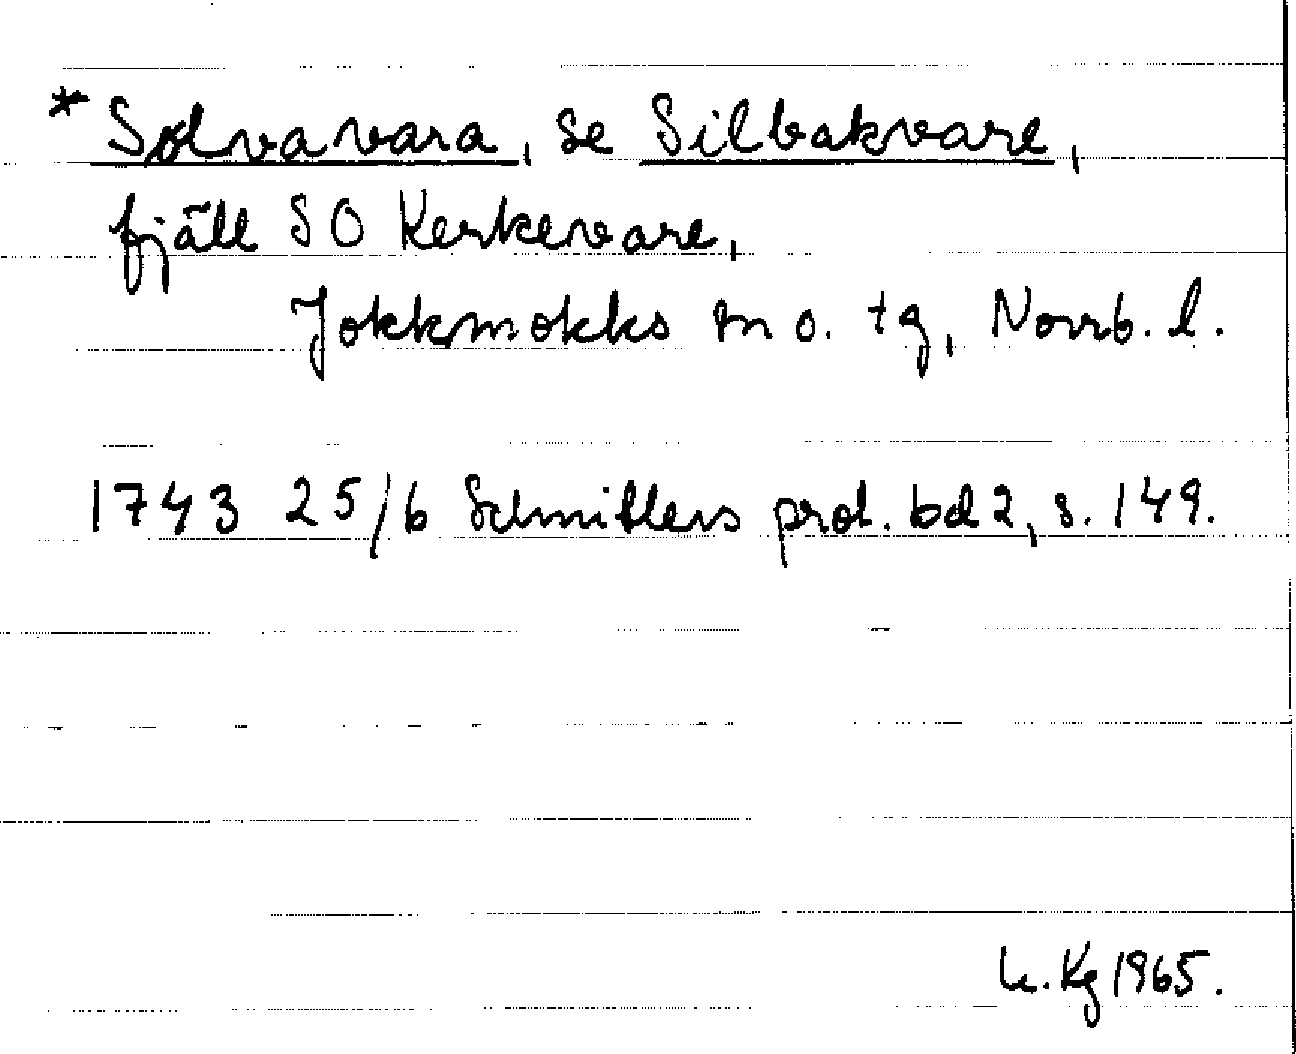 * Sølvavara, se Silbakvare,
fjäll SO Kerkevare,
Jokkmokks sn o. tg, Norrb. l.
1743 25/6 Schnitlers prot. bd 2, s. 149.
Kg 1965.